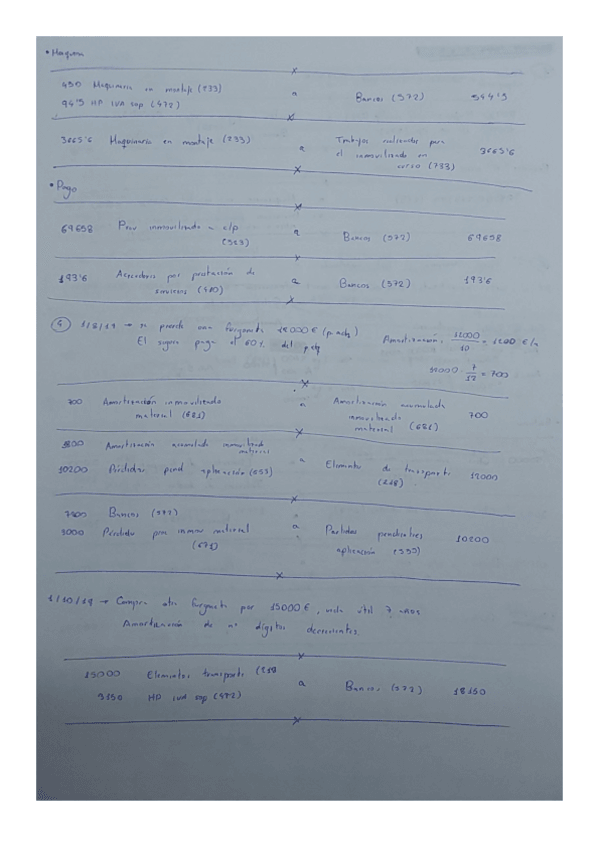 • Maquina
450 Maquinaria en montaje (233)
94'5 HP IVA sop (472) a Bancos (572) 544'5
3665'6 Maquinaria en montaje (233) a Trabajos realizados para
el inmovilizado en
curso (733) 3665'6
• Pago
69658 Prov inmovilizado c/p
(523) a Bancos (572) 69658
193'6 Acreedores por prestación de
servicios (410) a Bancos (572) 193'6
4 1/8/19 → se pierde una furgoneta 12000 € (p. adq)
El seguro paga el 60% del p. adq
Amortización: 12000/10 = 1200 €/a
12000 · 7/12 = 700
700 Amortización inmovilizado
material (681) a Amortización acumulada
inmovilizado
material (681) 700
1800 Amortización acumulada inmovilizado
material
10200 Partidas pend aplicación (555) a Elementos de transporte
(218) 12000
7200 Bancos (572)
3000 Pérdidas pro inmov material
(671) a Partidas pendientes
aplicación (555) 10200
1/10/19 → Compra otra furgoneta por 15000 €, vida útil 7 años
Amortización de nº dígitos decrecientes.
15000 Elementos transporte (218
3150 HP IVA sop (472) a Bancos (572) 18150